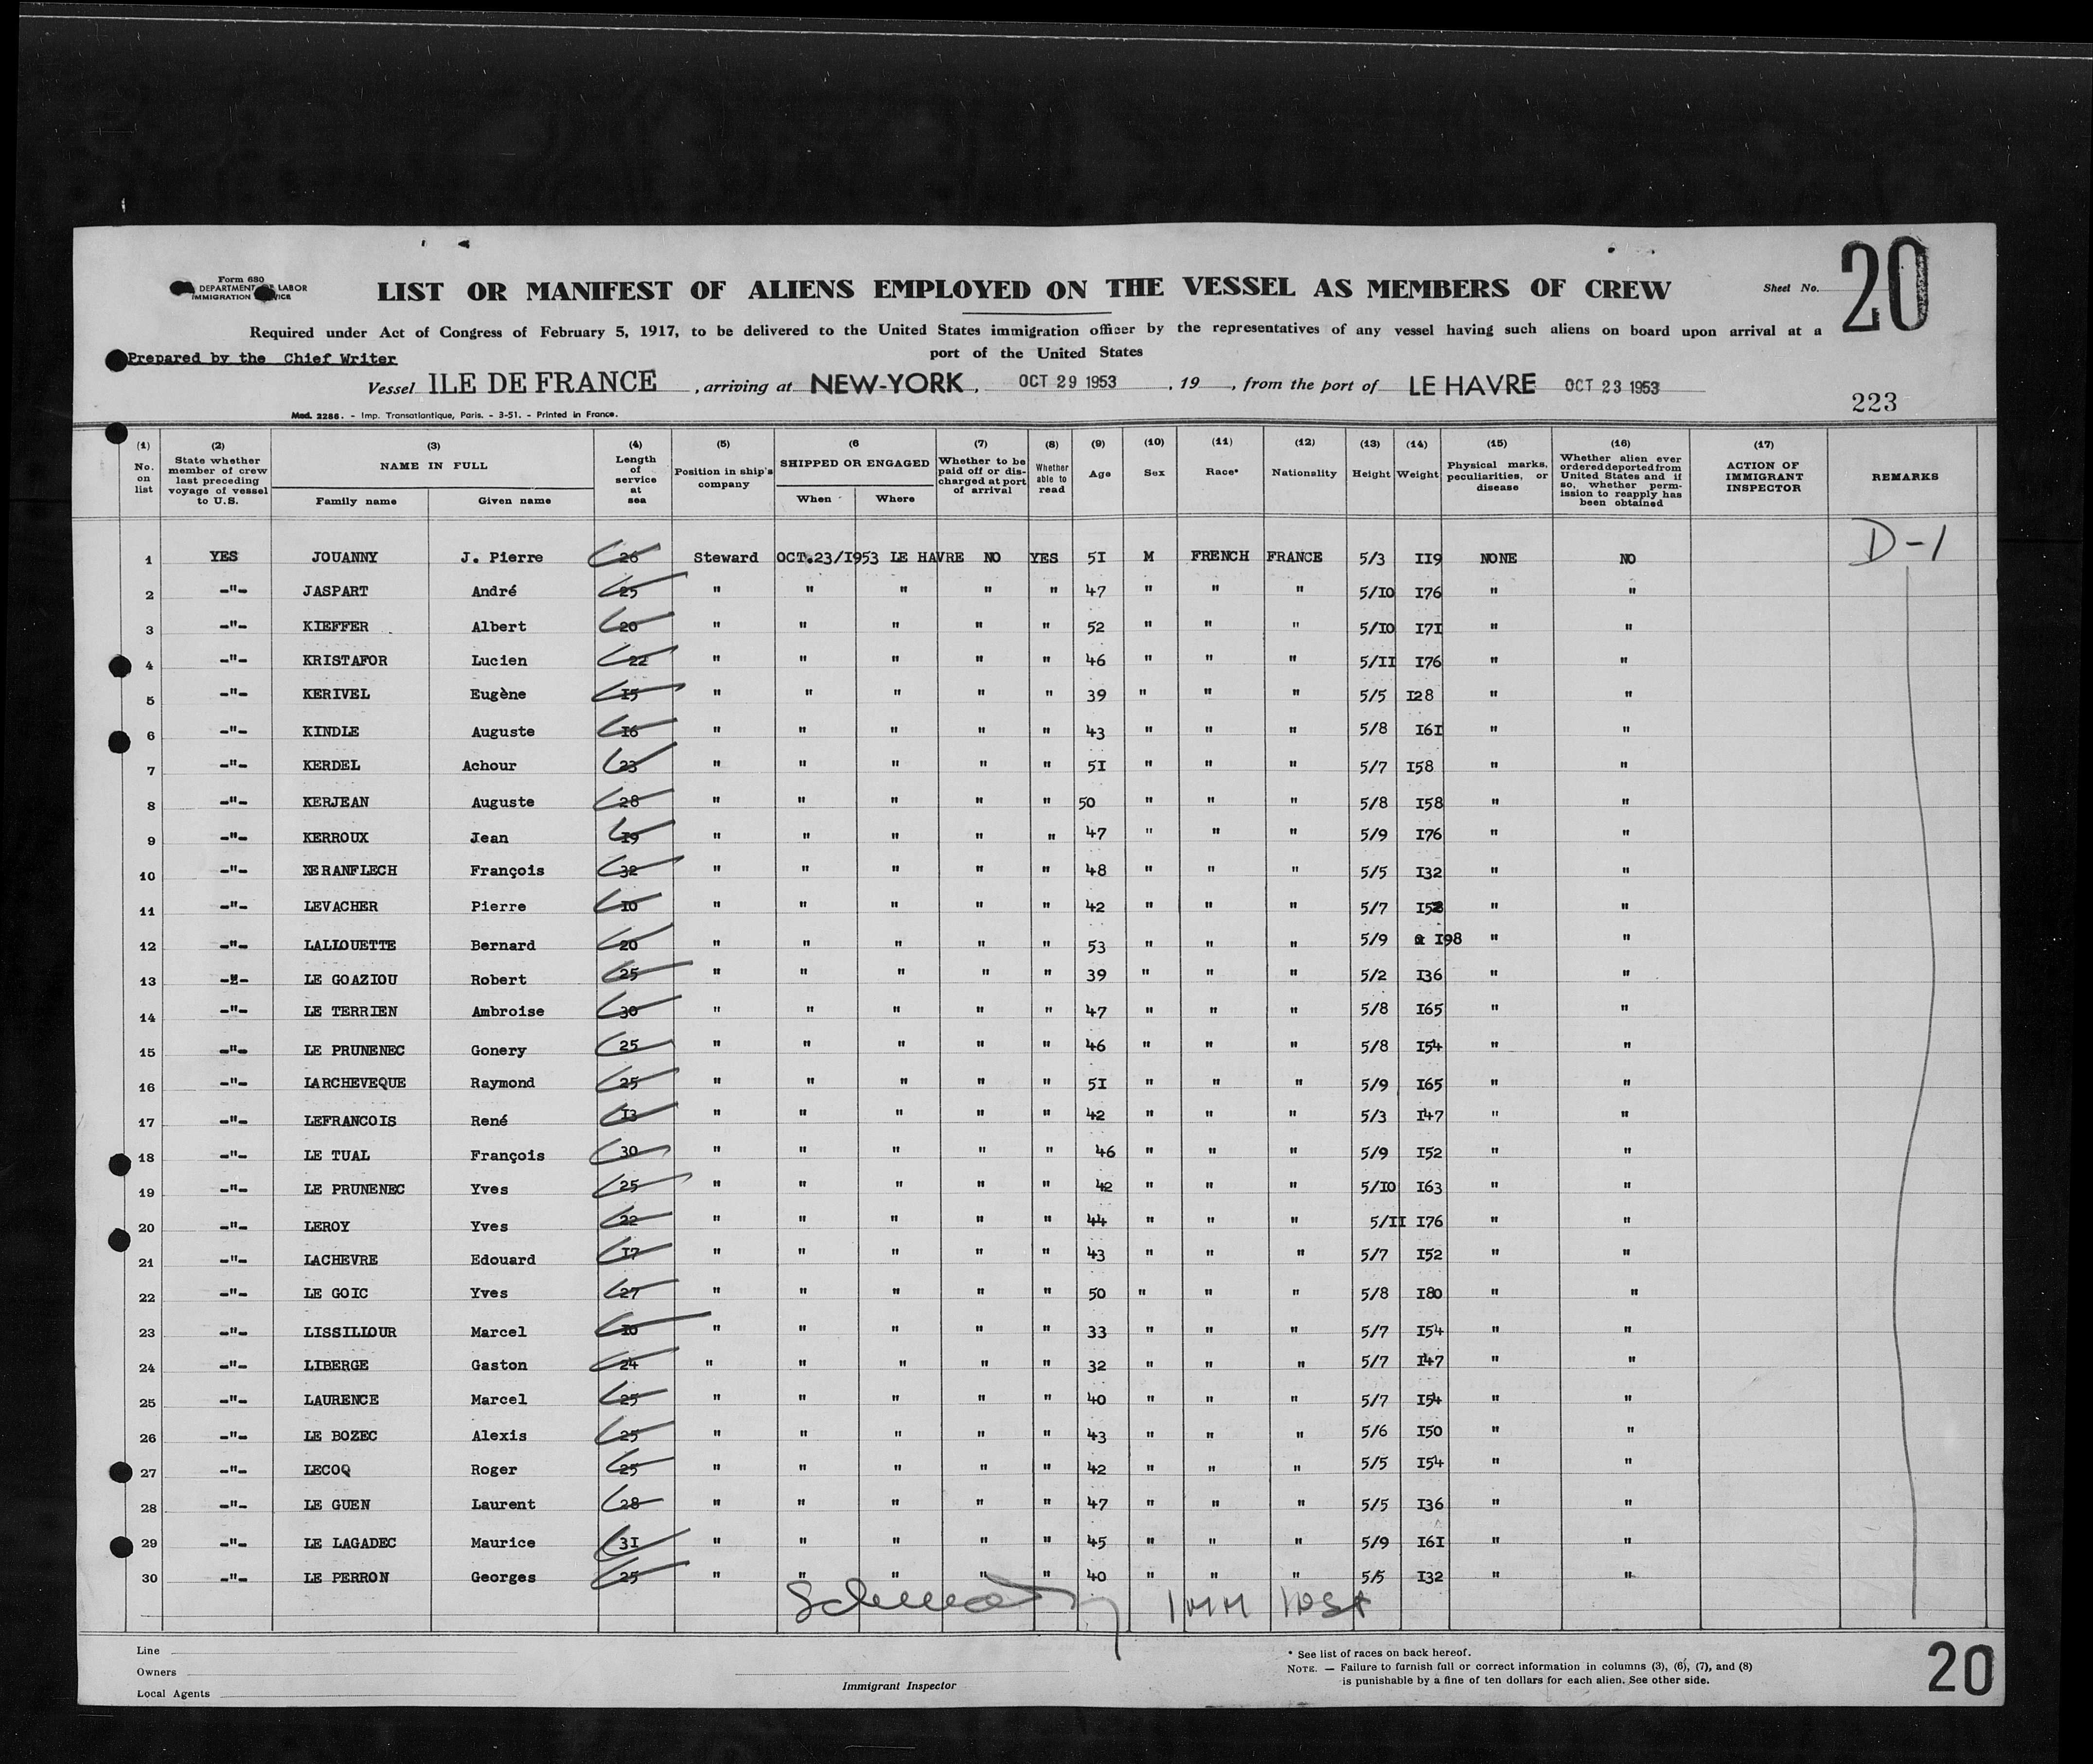 Form 680
DEPARTMENT OF LABOR
IMMIGRATION SERVICE
LIST OR MANIFEST OF ALIENS EMPLOYED ON THE VESSEL AS MEMBERS OF CREW
Sheet No. 20
Required under Act of Congress of February 5, 1917, to be delivered to the United States immigration officer by the representatives of any vessel having such aliens on board upon arrival at a
port of the United States
Prepared by the Chief Writer
Vessel ILE DE FRANCE, arriving at NEW-YORK, OCT 29 1953, 19, from the port of LE HAVRE OCT 23 1953
Mod. 2286. - Imp. Transatlantique, Paris. - 3-51. - Printed in France.
223
(1) (2) (3) (4) (5) (6 (7) (8) (9) (10) (11) (12) (13) (14) (15) (16) (17)
No. on list
State whether member of crew last preceding voyage of vessel to U.S.
NAME IN FULL
Family name Given name
Length of service at sea
Position in ship's company
SHIPPED OR ENGAGED
When Where
Whether to be paid off or discharged at port of arrival
Whether able to read
Age
Sex
Race*
Nationality
Height
Weight
Physical marks, peculiarities, or disease
Whether alien ever ordered deported from United States and if so, whether permission to reapply has been obtained
ACTION OF IMMIGRANT INSPECTOR
REMARKS
D-1
1 YES JOUANNY J. Pierre 26 Steward OCT.23/1953 LE HAVRE NO YES 51 M FRENCH FRANCE 5/3 119 NONE NO
2 -"- JASPART André 25 " " " " " 47 " " " 5/10 176 " "
3 -"- KIEFFER Albert 20 " " " " " 52 " " " 5/10 171 " "
4 -"- KRISTAFOR Lucien 22 " " " " " 46 " " " 5/11 176 " "
5 -"- KERIVEL Eugène 15 " " " " " 39 " " " 5/5 128 " "
6 -"- KINDLE Auguste 16 " " " " " 43 " " " 5/8 161 " "
7 -"- KERDEL Achour 23 " " " " " 51 " " " 5/7 158 " "
8 -"- KERJEAN Auguste 28 " " " " " 50 " " " 5/8 158 " "
9 -"- KERROUX Jean 19 " " " " " 47 " " " 5/9 176 " "
10 -"- KERANFLECH François 32 " " " " " 48 " " " 5/5 132 " "
11 -"- LEVACHER Pierre 10 " " " " " 42 " " " 5/7 " "
12 -"- LALLOUETTE Bernard 20 " " " " " 53 " " " 5/9 198 " "
13 -"- LE GOAZIOU Robert 25 " " " " " 39 " " " 5/2 136 " "
14 -"- LE TERRIEN Ambroise 30 " " " " " 47 " " " 5/8 165 " "
15 -"- LE PRUNENEC Gonery 25 " " " " " 46 " " " 5/8 154 " "
16 -"- LARCHEVEQUE Raymond 25 " " " " " 51 " " " 5/9 165 " "
17 -"- LEFRANCOIS René 13 " " " " " 42 " " " 5/3 147 " "
18 -"- LE TUAL François 30 " " " " " 46 " " " 5/9 152 " "
19 -"- LE PRUNENEC Yves 25 " " " " " 42 " " " 5/10 163 " "
20 -"- LEROY Yves 22 " " " " " 44 " " " 5/11 176 " "
21 -"- LACHEVRE Edouard 17 " " " " " 43 " " " 5/7 152 " "
22 -"- LE GOIC Yves 27 " " " " " 50 " " " 5/8 180 " "
23 -"- LISSILLOUR Marcel 10 " " " " " 33 " " " 5/7 154 " "
24 -"- LIBERGE Gaston 24 " " " " " 32 " " " 5/7 147 " "
25 -"- LAURENCE Marcel 25 " " " " " 40 " " " 5/7 154 " "
26 -"- LE BOZEC Alexis 25 " " " " " 43 " " " 5/6 150 " "
27 -"- LECOQ Roger 25 " " " " " 42 " " " 5/5 154 " "
28 -"- LE GUEN Laurent 28 " " " " " 47 " " " 5/5 136 " "
29 -"- LE LAGADEC Maurice 31 " " " " " 45 " " " 5/9 161 " "
30 -"- LE PERRON Georges 25 " " " " " 40 " " " 5/5 132 " "
Line
Owners
Local Agents
Immigrant Inspector
* See list of races on back hereof.
NOTE. — Failure to furnish full or correct information in columns (3), (6), (7), and (8)
is punishable by a fine of ten dollars for each alien. See other side.
20